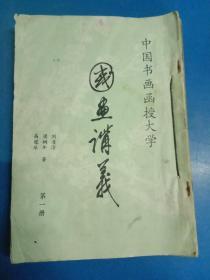 中国书画函授大学
国画讲义
著
第一册